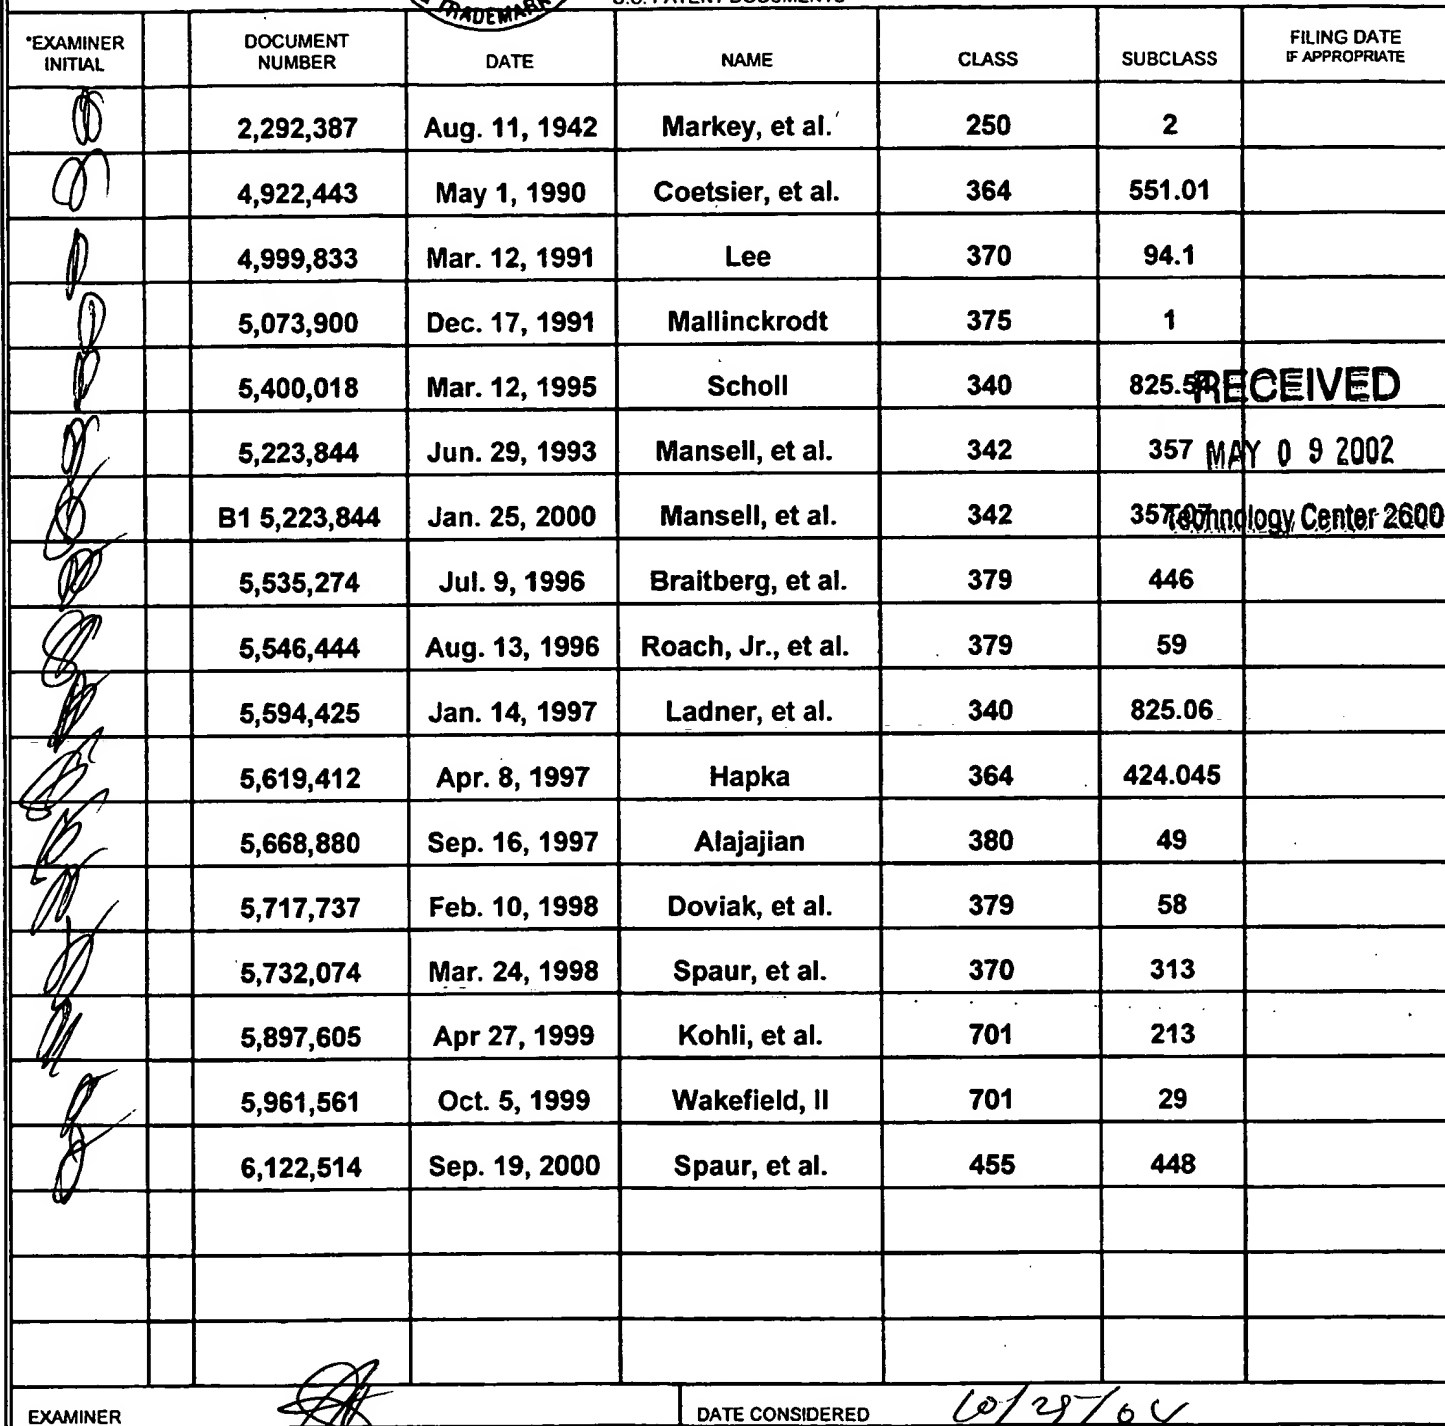 TRADEMARK
U.S. PATENT DOCUMENTS
*EXAMINER INITIAL DOCUMENT NUMBER DATE NAME CLASS SUBCLASS FILING DATE IF APPROPRIATE
2,292,387 Aug. 11, 1942 Markey, et al. 250 2
4,922,443 May 1, 1990 Coetsier, et al. 364 551.01
4,999,833 Mar. 12, 1991 Lee 370 94.1
5,073,900 Dec. 17, 1991 Mallinckrodt 375 1
5,400,018 Mar. 12, 1995 Scholl 340 RECEIVED
5,223,844 Jun. 29, 1993 Mansell, et al. 342 357 MAY 0 9 2002
B1 5,223,844 Jan. 25, 2000 Mansell, et al. 342 Technology Center 2600
5,535,274 Jul. 9, 1996 Braitberg, et al. 379 446
5,546,444 Aug. 13, 1996 Roach, Jr., et al. 379 59
5,594,425 Jan. 14, 1997 Ladner, et al. 340 825.06
5,619,412 Apr. 8, 1997 Hapka 364 424.045
5,668,880 Sep. 16, 1997 Alajajian 380 49
5,717,737 Feb. 10, 1998 Doviak, et al. 379 58
5,732,074 Mar. 24, 1998 Spaur, et al. 370 313
5,897,605 Apr 27, 1999 Kohli, et al. 701 213
5,961,561 Oct. 5, 1999 Wakefield, II 701 29
6,122,514 Sep. 19, 2000 Spaur, et al. 455 448
EXAMINER DATE CONSIDERED